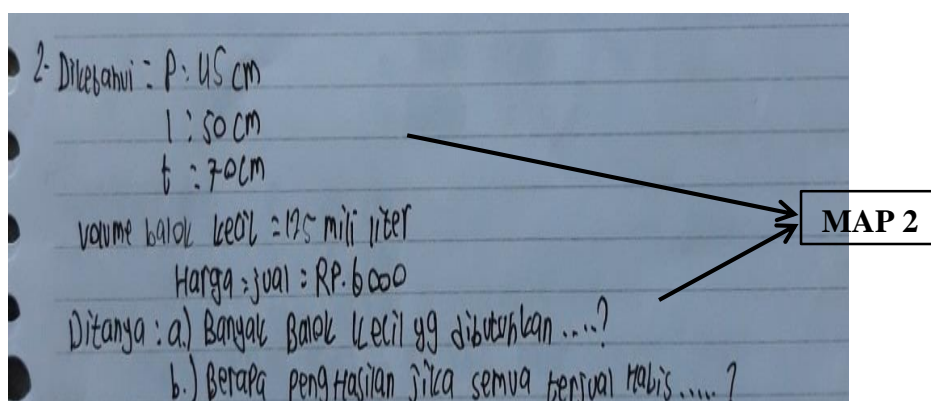 2. Diketahui : P : 45 cm
l : 50 cm
t : 70 cm
volume balok kecil = 125 mili liter
Harga : jual : RP. 6000
Ditanya : a.) Banyak Balok kecil yg dibutuhkan ....?
b.) Berapa penghasilan jika semua terjual Habis.....?
MAP 2